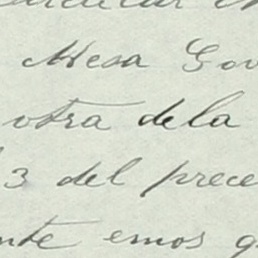 Mesa Gov
otra dela
3 del prece
nte emos q